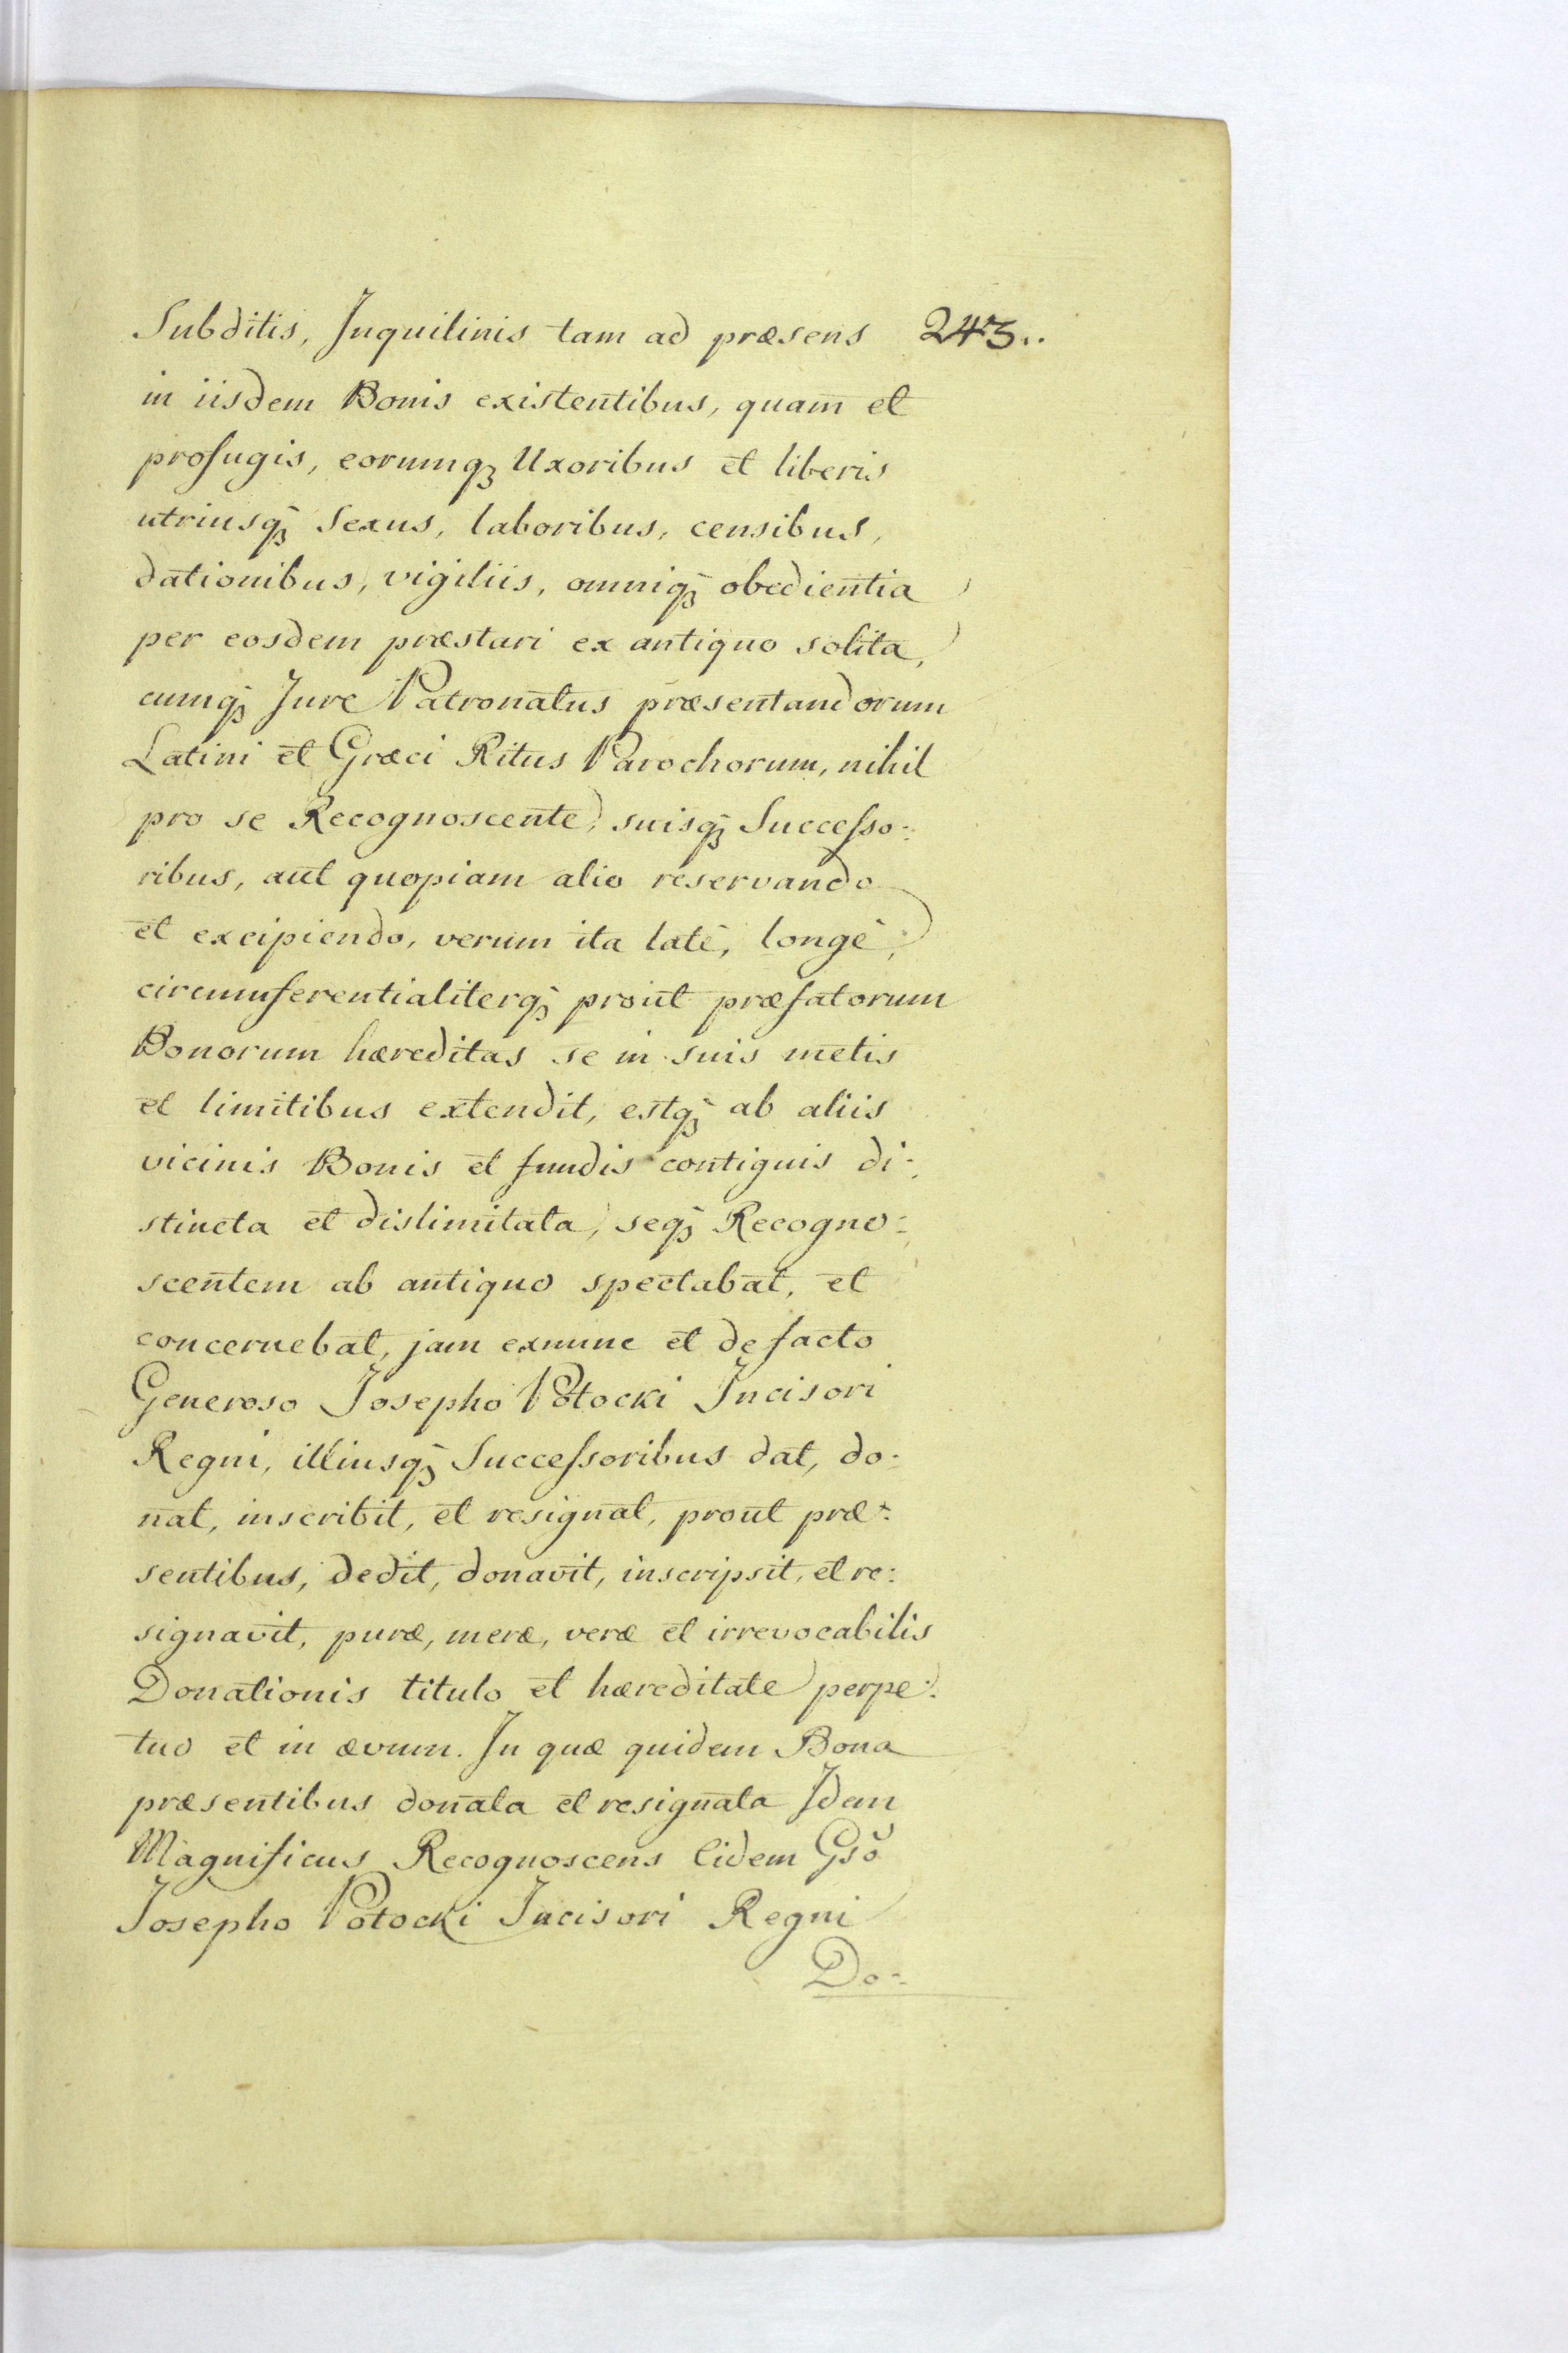 Subditis, Inquilinis tam ad præsens 243..
in iisdem Bonis existentibus, quam et
profugis, eorumq3 Uxoribus et liberis
utriusq3 Sexus, laboribus, censibus,
dationibus, vigiliis, omniq3 obedientia
per eosdem præstari ex antiquo solita,
cumq3 Jure Patronatus præsentandorum
Latini et Græci Ritus Parochorum, nihil
pro se Recognoscente, suisq3 Successo-:
ribus, aut quopiam alio reservando
et excipiendo, verum ita latè, longè,
circumferentialiterq3 prout præfatorum
Bonorum hæreditas se in suis metis
et limitibus extendit, estq3 ab aliis
vicinis Bonis et fundis contiguis di-:
stincta et dislimitata, seq3 Recogno-:
scentem ab antiquo spectabat, et
concernebat, jam exnunc et de facto
Generoso Josepho Potocki Incisori
Regni, illiusq3 Successoribus dat, do-:
nat, inscribit, et resignat, prout præ-:
sentibus, dedit, donavit, inscripsit, et re-:
signavit, puræ, meræ, veræ et irrevocabilis
Donationis titulo et hæreditate perpe-:
tuo et in ævum. In quæ quidem Bona
præsentibus donata et resignata Idem
Magnificus Recognoscens Eidem Gso
Josepho Potocki Incisori Regni
Do-: